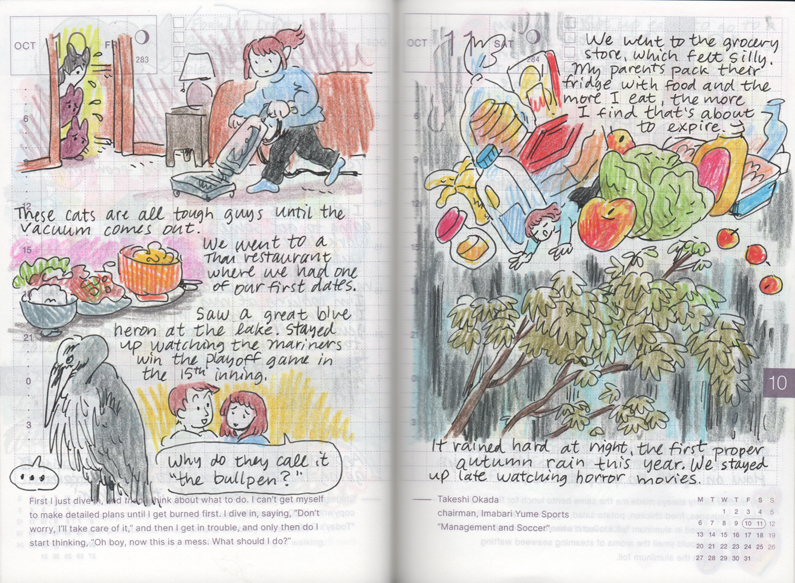 OCT
FR
283
These cats are all tough guys until the
vacuum comes out.
We went to a
Thai restaurant
where we had one
of our first dates.
Saw a great blue
heron at the lake. Stayed
up watching the mariners
win the playoff game in
the 15th inning.
Why do they call it
"the bullpen?"
6
12
15
21
0
3
First I just dive in, and then think about what to do. I can't get myself
to make detailed plans until I get burned first. I dive in, saying, "Don't
worry, I'll take care of it," and then I get in trouble, and only then do I
start thinking, "Oh boy, now this is a mess. What should I do?"
OCT
11
SAT
284
We went to the grocery
store, which felt silly.
My parents pack their
fridge with food and the
more I eat, the more
I find that's about
to expire.
10
It rained hard at night, the first proper
autumn rain this year. We stayed
up late watching horror movies.
Takeshi Okada
chairman, Imabari Yume Sports
"Management and Soccer"
M T W T F S S
1 2 3 4 5
6 7 8 9 10 11 12
13 14 15 16 17 18 19
20 21 22 23 24 25 26
27 28 29 30 31